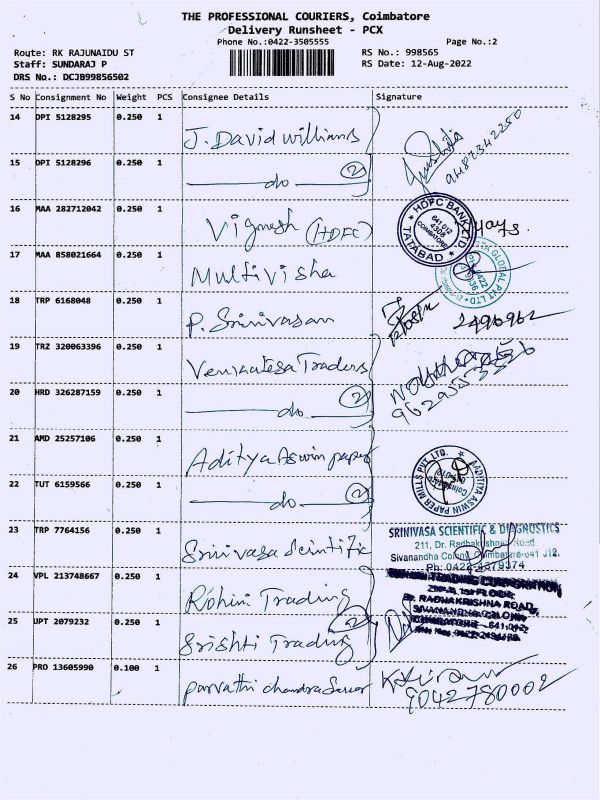 THE PROFESSIONAL COURIERS, Coimbatore
Delivery Runsheet - PCX
Phone No.:0422-3505555
Page No.:2
Route: RK RAJUNAIDU ST
RS No.: 998565
Staff: SUNDARAJ P
RS Date: 12-Aug-2022
DRS No.: DCJB99856502
S No Consignment No Weight PCS Consignee Details Signature
14 DPI 5128295 0.250 1 J. David williams
15 DPI 5128296 0.250 1 do 2
16 MAA 282712042 0.250 1 Vignesh (HDFC)
HDFC BANK LTD
641 012
4308
COIMBATORE
TATABAD
17 MAA 858021664 0.250 1 Multivisha
GLOBAL PVT LTD
18 TRP 6168048 0.250 1 P. Srinivasan 2496962
19 TRZ 320063396 0.250 1 Venkatesa Traders
20 HRD 326287159 0.250 1 do 2
21 AMD 25257106 0.250 1 Aditya Aswin paper
AADITIYA ASWIN PAPER MILLS PVT. LTD.
22 TUT 6159566 0.250 1 do 2
23 TRP 7764156 0.250 1 Srinivasa Scintific
SRINIVASA SCIENTIFIC & DIAGNOSTICS
211, Dr. Radhakrishnan Road
Sivanandha Colony, Coimbatore-641 012.
Ph: 0422-4379374
24 VPL 213748667 0.250 1 Rohini Trading
ROHINI TRADING CORPORATION
1st FLOOR
Dr. RADHAKRISHNA ROAD,
SIVANANDHA COLONY
COIMBATORE - 641 012
25 UPT 2079232 0.250 1 Srishti Trading 2
26 PRO 13605990 0.100 1 parvathi chandra Sekar
9042780002